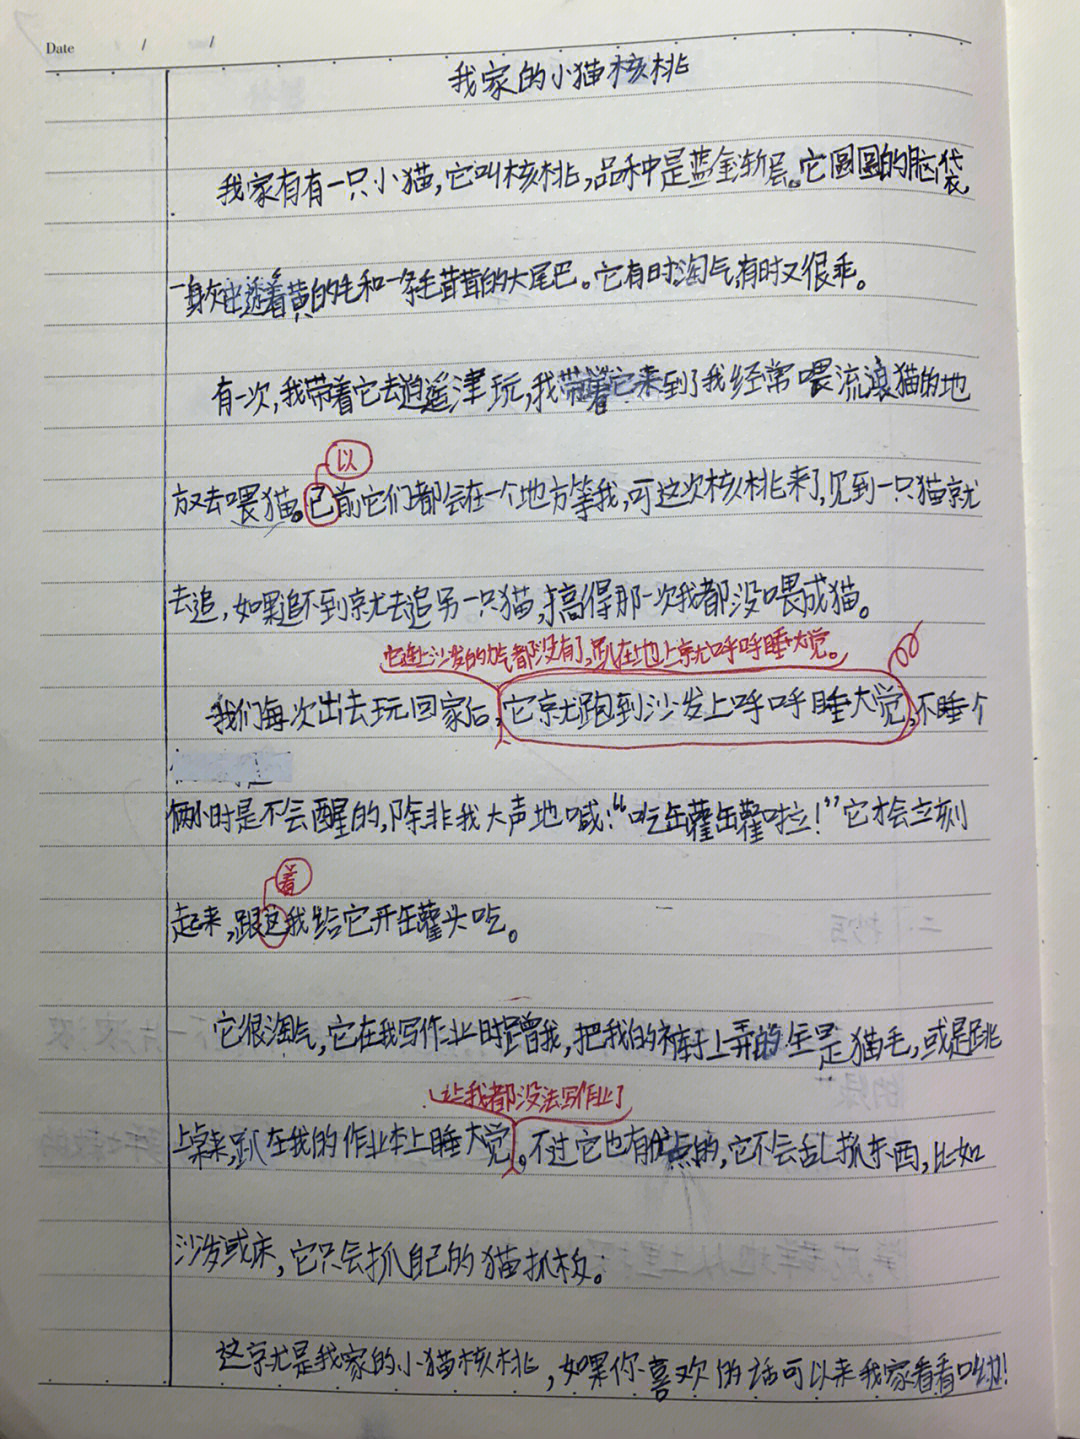 Date / /
我家的小猫核桃
我家有有一只小猫,它叫核桃,品种中是蓝金渐层。它圆圆的脑袋
一身灰中透着黄的的毛和一条毛茸茸的大尾巴。它有时淘气,有时又很乖。
有一次,我带着它去逍遥津玩,我带着它来到了我经常喂流浪猫的地
以
方去喂猫。已前它们都会在一个地方等我,可这次核桃来了,见到一只猫就
去追,如果追不到就去追另一只猫,搞得那一次我都没喂成猫。
它连上沙发的力气都没有了,趴在地上就呼呼睡大觉。
我们每次出去玩回家后,它就跑到沙发上呼呼睡大觉,不睡个
俩小时是不会醒的,除非我大声地喊:“吃罐罐啦!”它才会立刻
着
起来,跟这我给它开罐头吃。
它很淘气,它在我写作业时蹭我,把我的裤子上弄的全是猫毛,或是跳
让我都没法写作业了
上桌,趴在我的作业本上睡大觉。不过它也有优点的,它不会乱抓东西,比如
沙发或床,它只会抓自己的猫抓板。
这就是我家的小猫核桃,如果你喜欢的话可以来我家看看呦!